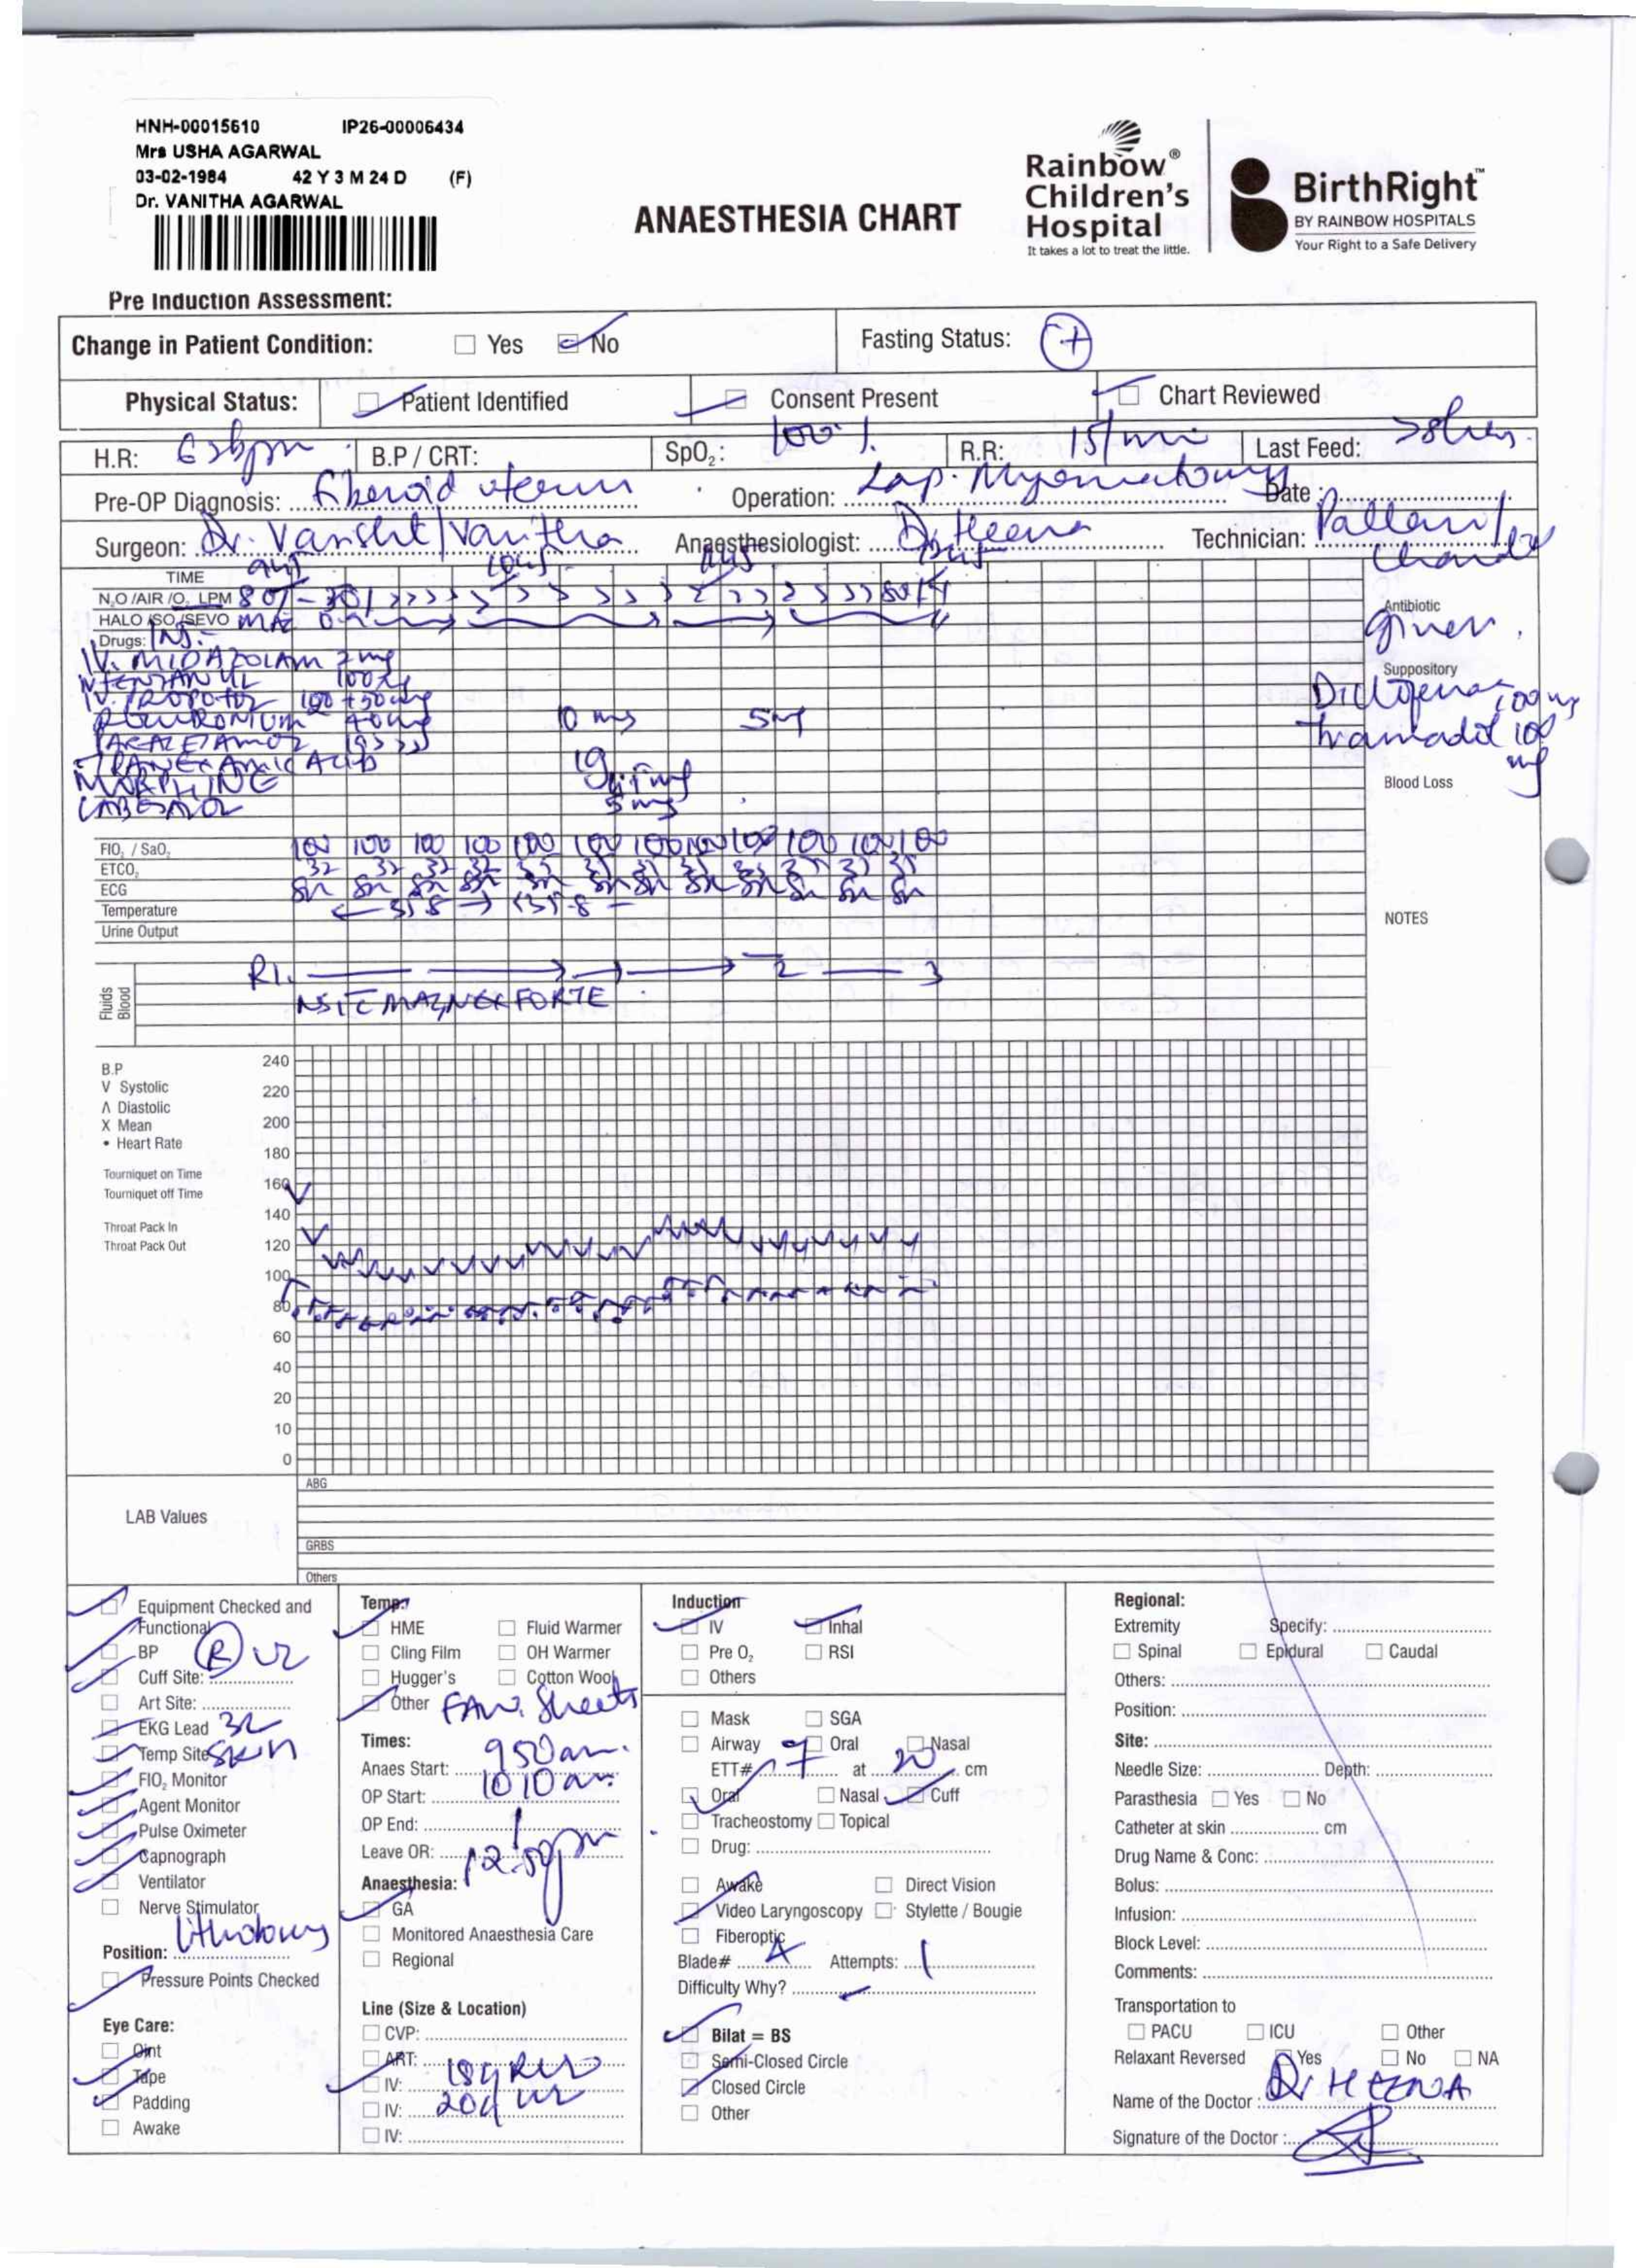 HNH-00015610 IP26-00006434
Mrs USHA AGARWAL
03-02-1984 42 Y 3 M 24 D (F)
Dr. VANITHA AGARWAL
ANAESTHESIA CHART
Rainbow®
Children's
Hospital
It takes a lot to treat the little.
BirthRight™
BY RAINBOW HOSPITALS
Your Right to a Safe Delivery
Pre Induction Assessment:
Change in Patient Condition: Yes No Fasting Status: +
Physical Status: Patient Identified Consent Present Chart Reviewed
H.R: bpm B.P / CRT: SpO₂: 100% R.R: 15/min Last Feed: >8hrs.
Pre-OP Diagnosis: fiberoid uterus Operation: Lap. Myomectomy Date :
Surgeon: Dr. Vanshit/Vanitha Anaesthesiologist: Dr Heena Technician: Pallavi/
TIME
N₂O /AIR /O₂ LPM
HALO /ISO /SEVO MAC
Drugs: INJ.
IV. MIDAZOLAM 2mg
100
IV. PROPOFOL 100 + 50mg
40mg 10 mg 5mg
TRANEXAMIC ACID 1g
MORPHINE
5mg
Antibiotic
given.
Suppository
Diclofenac 100 mg
Tramadol 100
mg
Blood Loss
FIO₂ / SaO₂ 100 100 100 100 100 100 100 100 100 100 100 100
ETCO₂ 32 32 32 32
ECG
Temperature
Urine Output
NOTES
Fluids
Blood
RL 2 3
FORTE
B.P
V Systolic
Λ Diastolic
X Mean
• Heart Rate
Tourniquet on Time
Tourniquet off Time
Throat Pack In
Throat Pack Out
240
220
200
180
160
140
120
100
80
60
40
20
10
0
LAB Values
ABG
GRBS
Others
Equipment Checked and
Functional
BP
Cuff Site: (R) UL
Art Site:
EKG Lead 3L
Temp Site Skin
FIO₂ Monitor
Agent Monitor
Pulse Oximeter
Capnograph
Ventilator
Nerve Stimulator
Position: lithotomy
Pressure Points Checked
Eye Care:
Oint
Tape
Padding
Awake
Temp:
HME Fluid Warmer
Cling Film OH Warmer
Hugger's Cotton Wool
Other Sheets
Times:
Anaes Start: 950am.
OP Start: 1010am.
OP End:
Leave OR: 12:50pm
Anaesthesia:
GA
Monitored Anaesthesia Care
Regional
Line (Size & Location)
CVP:
ART:
IV: 18g
IV: 20g
IV:
Induction
IV Inhal
Pre O₂ RSI
Others
Mask SGA
Airway Oral Nasal
ETT# 7 at 20 cm
Oral Nasal Cuff
Tracheostomy Topical
Drug:
Awake Direct Vision
Video Laryngoscopy Stylette / Bougie
Fiberoptic
Blade# 4 Attempts: 1
Difficulty Why?
Bilat = BS
Semi-Closed Circle
Closed Circle
Other
Regional:
Extremity Specify:
Spinal Epidural Caudal
Others:
Position:
Site:
Needle Size: Depth:
Parasthesia Yes No
Catheter at skin cm
Drug Name & Conc:
Bolus:
Infusion:
Block Level:
Comments:
Transportation to
PACU ICU Other
Relaxant Reversed Yes No NA
Name of the Doctor : Dr HEENA
Signature of the Doctor :